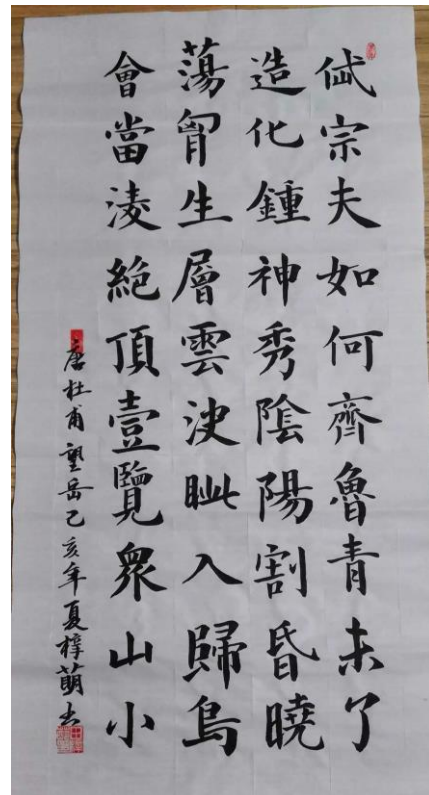 岱宗夫如何齊魯青未了
造化鍾神秀陰陽割昏曉
蕩胷生層雲決眦入歸鳥
會當淩絕頂壹覽衆山小
唐杜甫望岳己亥年夏梓萌书